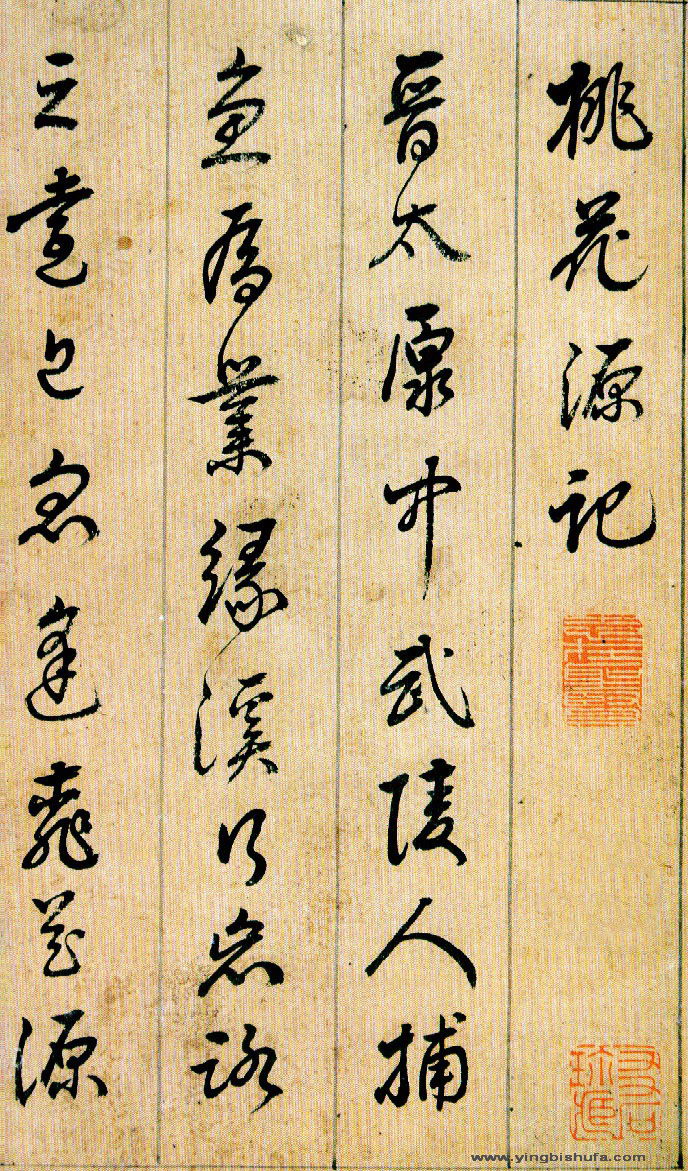 桃花源記
晉太原中武陵人捕
魚為業緣溪行忘路
之遠近忽逢桃花源
www.yingbishufa.com